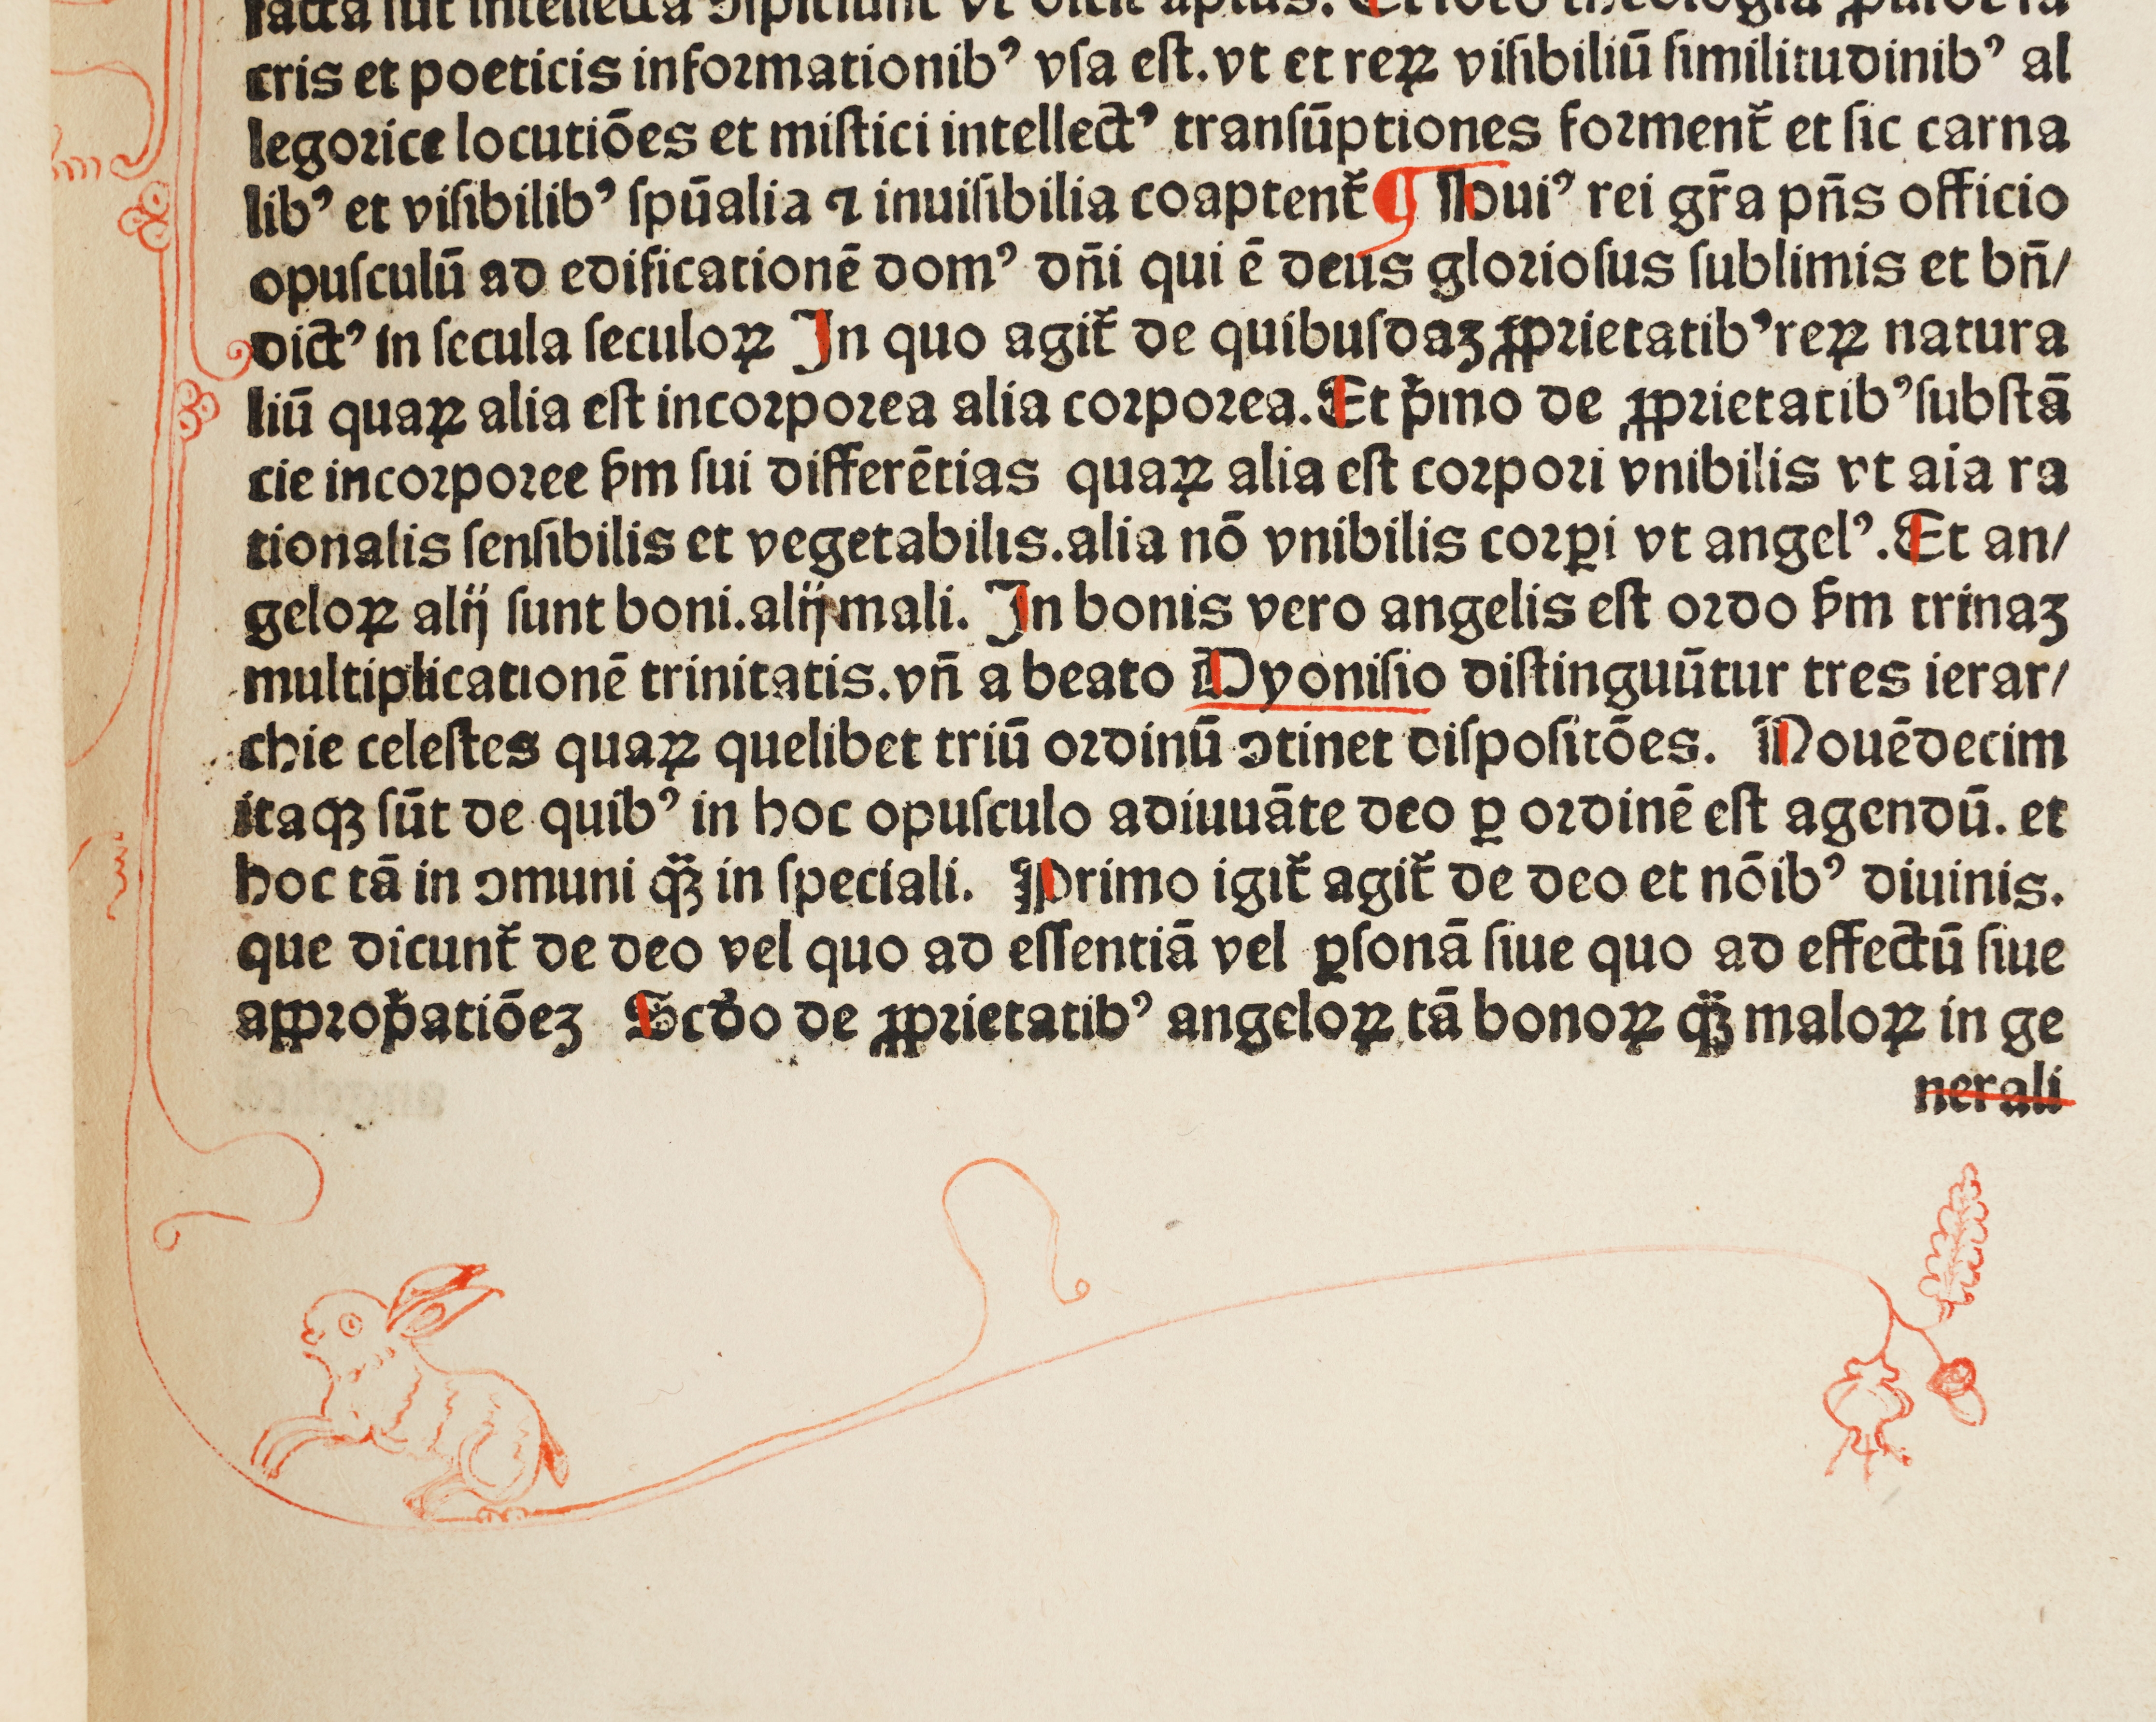 facta sūt intellecta ↄspiciunt vt dicit aptus. Et ideo theologia ꝓuide sa
cris et poeticis informationibꝰ vsa est. vt et reꝝ visibiliū similitudinibꝰ al
legorice locutiōes et mistici intellectꝰ transūptiones formentᷣ et sic carna
libꝰ et visibilibꝰ spūalia ⁊ inuisibilia coaptentᷣ ¶ Houiꝰ rei gr̄a pn̄s officio
opusculū ad edificationē domꝰ dn̄i qui ē deus gloriosus sublimis et bn̄/
dictꝰ in secula seculoꝝ In quo agitᷣ de quibusdaꝫ ꝓprietatibꝰ reꝝ natura
liū quaꝝ alia est incorporea alia corporea. Et pͥmo de ꝓprietatibꝰ substā
cie incorporee ẜm sui differētias quaꝝ alia est corpori vnibilis vt aīa ra
tionalis sensibilis et vegetabilis. alia nō vnibilis corꝑi vt angelꝰ. Et an/
geloꝝ alij sunt boni. alij mali. In bonis vero angelis est ordo ẜm trinaꝫ
multiplicationē trinitatis. vn̄ a beato Dyonisio distinguūtur tres ierar/
chie celestes quaꝝ quelibet triū ordinū ↄtinet dispositōes. Nouēdecim
itaqꝫ sūt de quibꝰ in hoc opusculo adiuuāte deo ꝑ ordinē est agendū. et
hoc tā in ↄmuni qͣꝫ in speciali. Primo igitᷣ agitᷣ de deo et nōibꝰ diuinis.
que dicuntᷣ de deo vel quo ad essentiā vel ꝑsonā siue quo ad effectū siue
apꝓpͥatiōeꝫ Scd̄o de ꝓprietatibꝰ angeloꝝ tā bonoꝝ qͣꝫ maloꝝ in ge
nerali